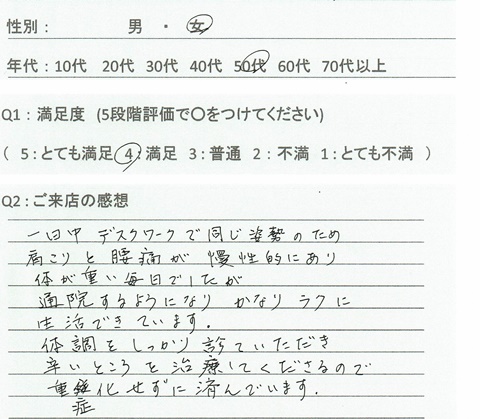 性別： 男 ・ 女
年代：10代 20代 30代 40代 50代 60代 70代以上
Q1：満足度 (5段階評価で〇をつけてください)
( 5：とても満足 4：満足 3：普通 2：不満 1：とても不満 )
Q2：ご来店の感想
一日中 デスクワークで同じ姿勢のため
肩こりと腰痛が 慢性的にあり
体が重い毎日でしたが
通院するようになり かなり ラクに
生活できています.
体調をしっかり診ていただき
辛いところを治療してくださるので
重症化せずに済んでいます.
症